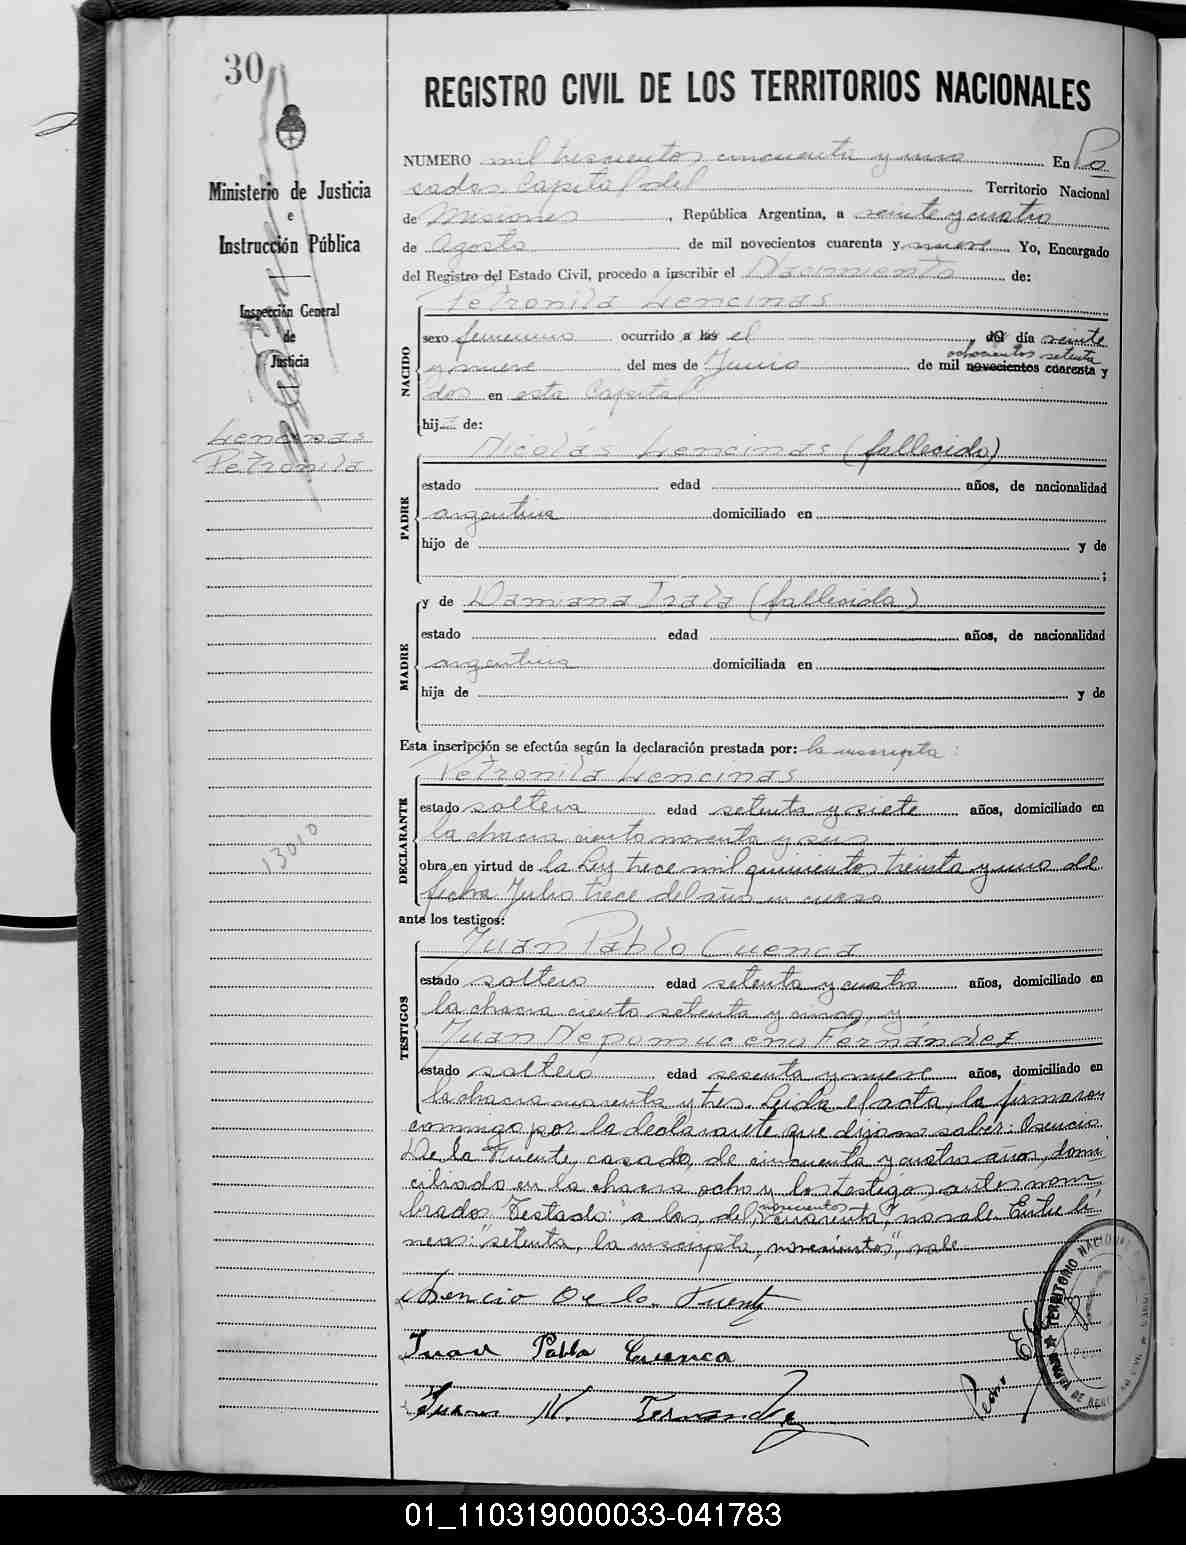 30
REGISTRO CIVIL DE LOS TERRITORIOS NACIONALES
Ministerio de Justicia
e
Instrucción Pública
Inspección General
de
Justicia
Lencinas
Petronila
13010
NUMERO mil trescientos cincuenta y uno En Po
sadas Capital del Territorio Nacional
de Misiones, República Argentina, a veinte y cuatro
de Agosto de mil novecientos cuarenta y nueve Yo, Encargado
del Registro del Estado Civil, procedo a inscribir el Nacimiento de:
Petronila Lencinas
NACIDO
sexo femenino ocurrido a las el del día veinte
ochocientos setenta
y nueve del mes de Junio de mil novecientos cuarenta y
dos en esta Capital
hija de:
Nicolás Lencinas (fallecido)
PADRE
estado edad años, de nacionalidad
argentina domiciliado en
hijo de y de
;
y de Damiana Irala (fallecida)
MADRE
estado edad años, de nacionalidad
argentina domiciliada en
hija de y de
Esta inscripción se efectúa según la declaración prestada por: la inscripta:
Petronila Lencinas
DECLARANTE
estado soltera edad setenta y siete años, domiciliado en
la chacra ciento noventa y seis
obra en virtud de la Ley trece mil quinientos treinta y uno de
fecha Julio trece del año en curso
ante los testigos:
Juan Pablo Cuenca
TESTIGOS
estado soltero edad setenta y cuatro años, domiciliado en
la chacra ciento setenta y cinco, y
Juan Nepomuceno Fernández
estado soltero edad sesenta y nueve años, domiciliado en
la chacra cuarenta y tres. Leida el acta, la firmaron
conmigo por la declarante que dijo no saber: Asencio
De la Fuente, casado, de cincuenta y cuatro años, domi
ciliado en la chacra ocho y los testigos antes nom
brados. Testado: "a las, del, novecientos cuarenta, no vale. Entre lí
neas: "setenta, la inscripta, novecientos", vale
Asencio De la Fuente
Juan Pablo Cuenca
Juan N. Fernandez
TERRITORIO NACIONAL
01_110319000033-041783